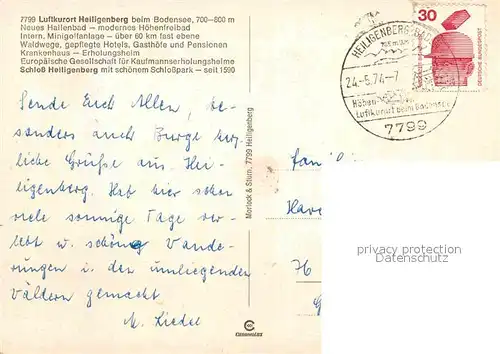 7799 Luftkurort Heiligenberg beim Bodensee, 700–800 m
Neues Hallenbad – modernes Höhenfreibad
Intern. Minigolfanlage – über 60 km fast ebene
Waldwege, gepflegte Hotels, Gasthöfe und Pensionen
Krankenhaus – Erholungsheim
Europäische Gesellschaft für Kaufmannserholungsheime
Schloß Heiligenberg mit schönem Schloßpark – seit 1590
Sende Euch Allen, be-
sonders auch Burge herz-
liche Grüße aus Hei-
ligenberg. Hab hier schon
viele sonnige Tage ver-
lebt u. schöne Wande-
rungen i. den umliegenden
Wäldern gemacht
Morlock & Sturn, 7799 Heiligenberg
HEILIGENBERG, BAD
24.-5.74.-7
Höhen-
Luftkurort beim Bodensee
7799
30
DEUTSCHE BUNDESPOST
Fam
76
privacy protection
www.oldthing.com